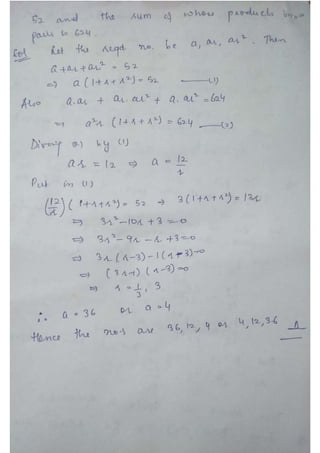 52 and the sum of whose products in
pairs is 624.
Sol Let the reqd no. be a, ar, ar². Then
a + ar + ar² = 52
⇒ a (1 + r + r²) = 52 —— (1)
Also a.ar + ar.ar² + a.ar² = 624
⇒ a²r (1 + r + r²) = 624 —— (2)
Divinig 2) by (1)
ar = 12 ⇒ a = 12/r
Put in (1)
(12/r) (1 + r + r²) = 52 → 3(1 + r + r²) = 13r
⇒ 3r² - 10r + 3 = 0
⇒ 3r² - 9r - r + 3 = 0
⇒ 3r (r - 3) - 1(r - 3) = 0
⇒ (3r - 1) (r - 3) = 0
⇒ r = 1/3, 3
∴ a = 36 or a = 4
Hence the no's are 36, 12, 4 or 4, 12, 36